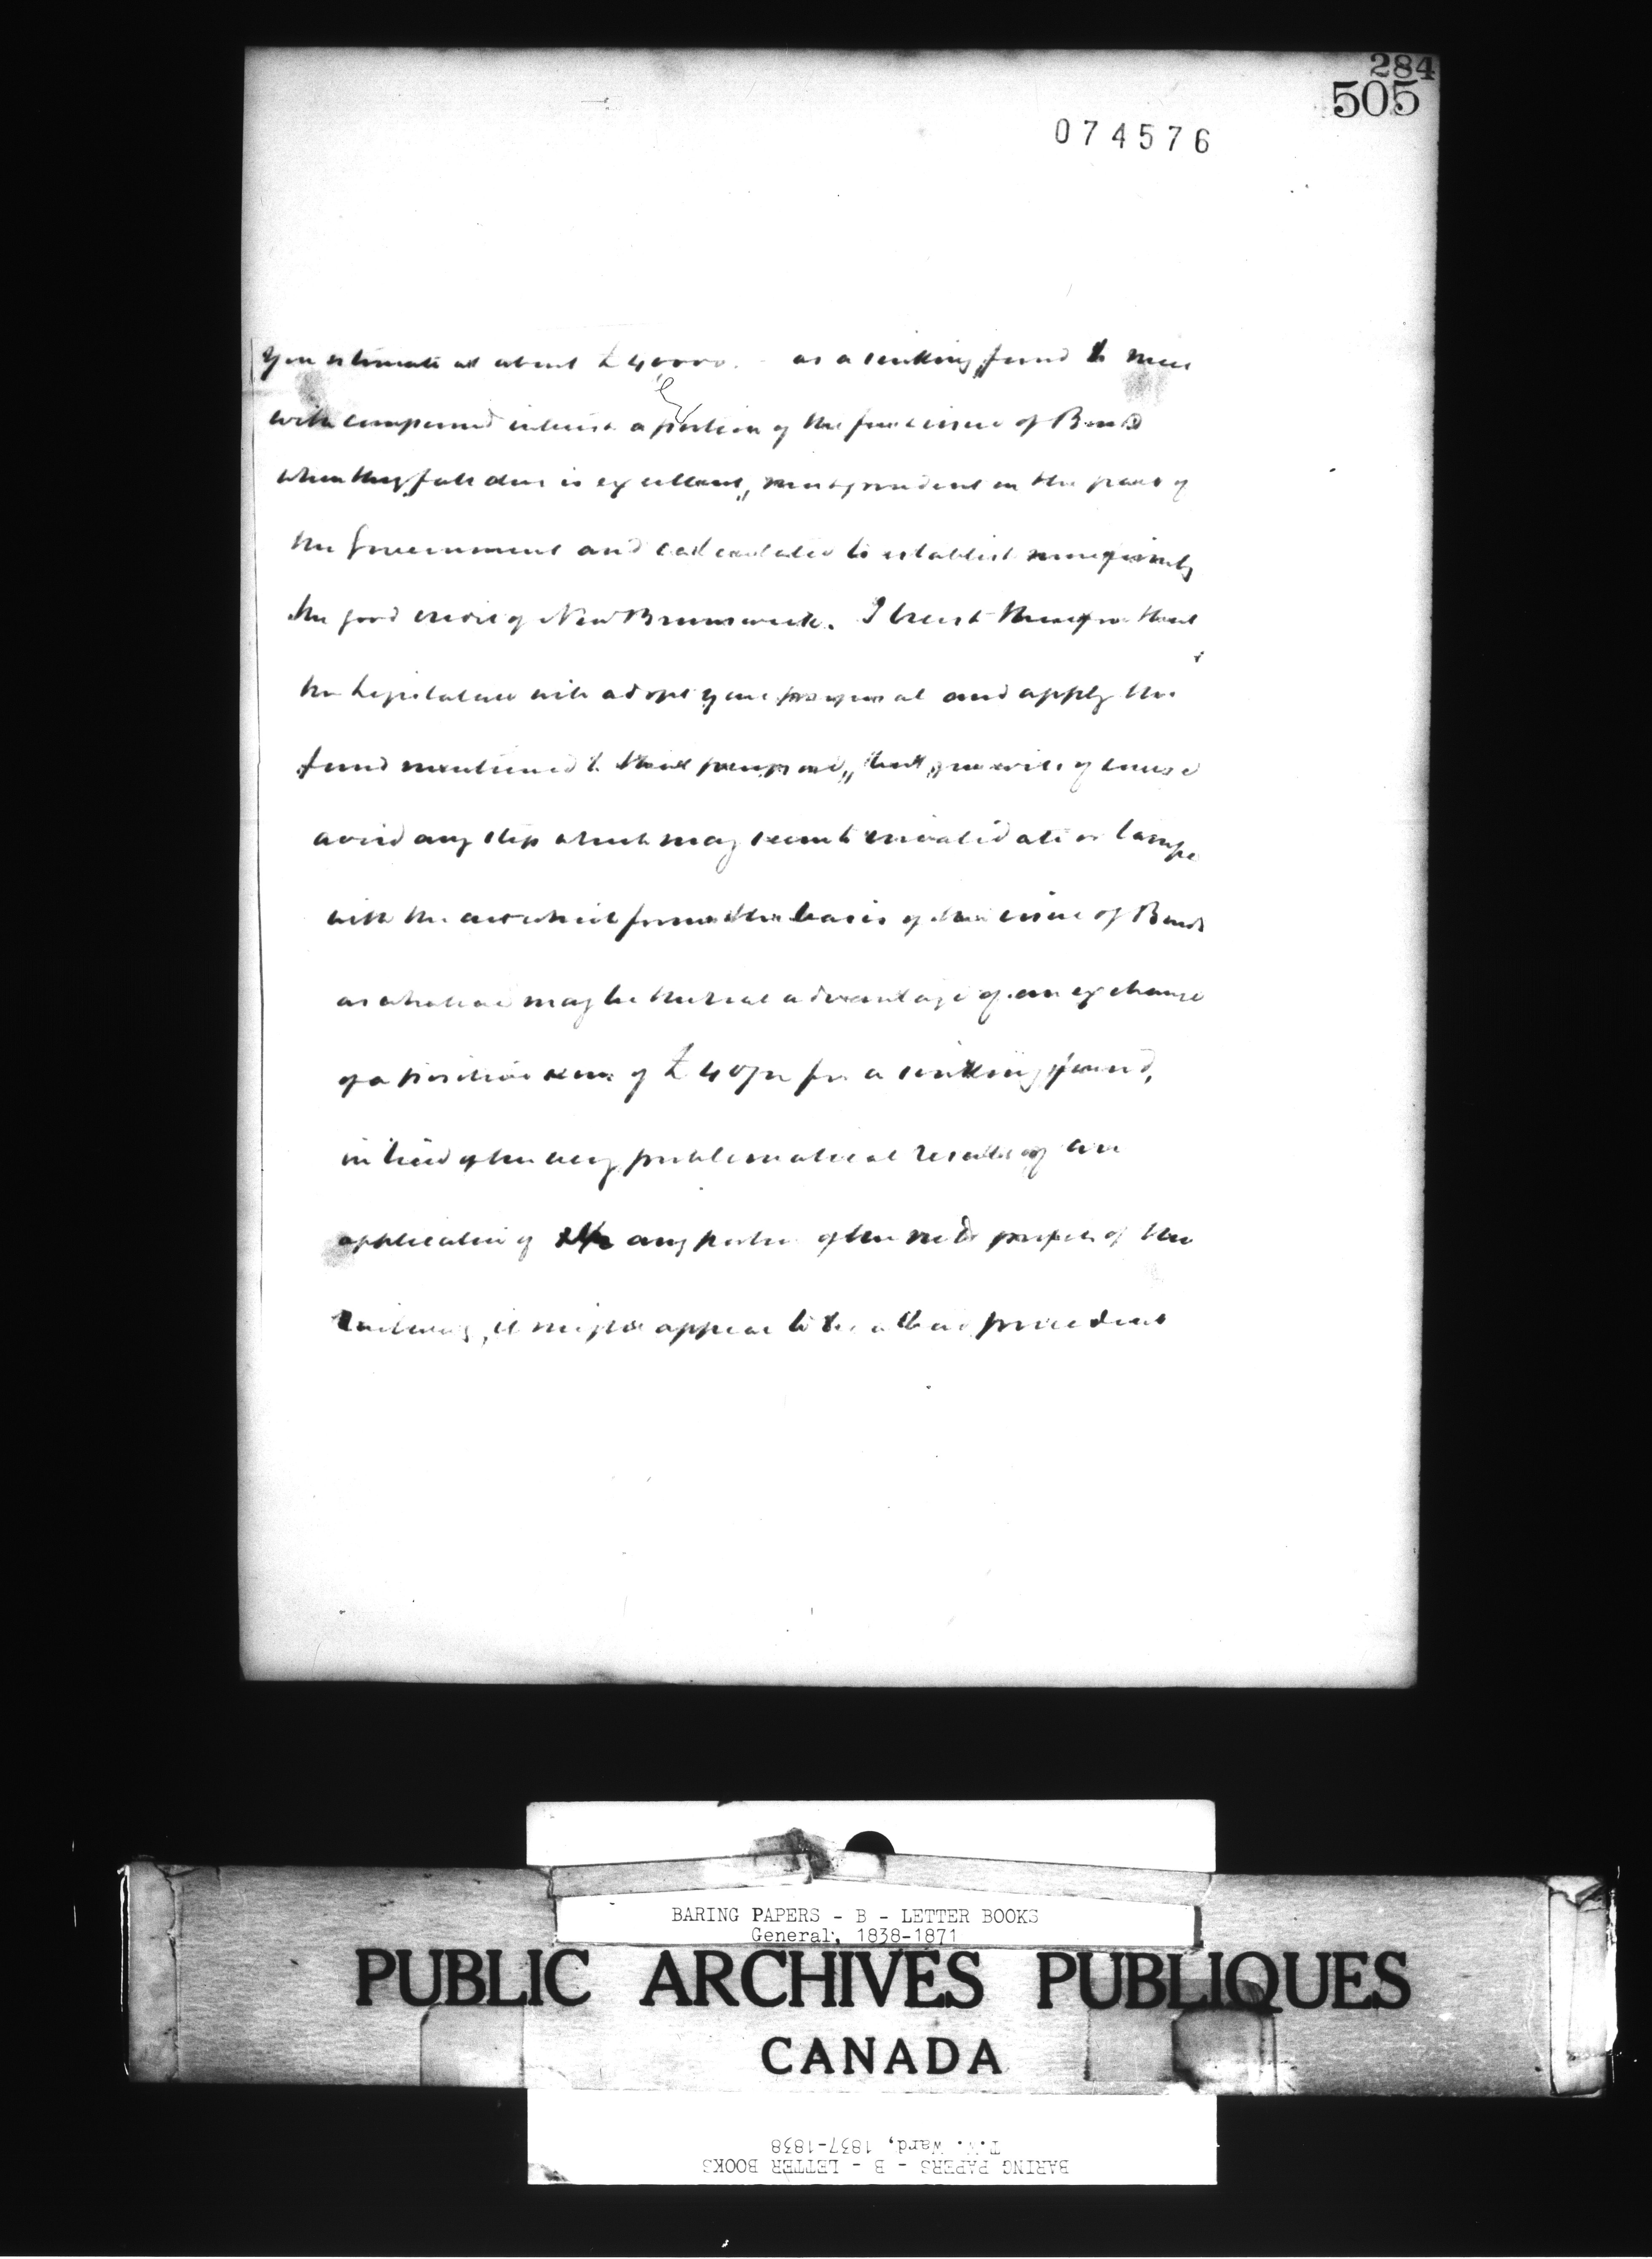 284
505
074576
you estimate at about £40000. - as a sinking fund to meet
with compound interest a portion of the free issue of Bonds
when they fall due is excellent, most prudent on the part of
the Government and calculated to establish more firmly
the good credit of New Brunswick. I trust therefore that
the Legislature will adopt your proposal and apply the
fund mentioned to that purpose, but you will of course
avoid any step which may seem to invalidate or tamper
with the act which forms the basis of the issue of Bonds
as whatever may be the real advantage of an exchange
of a positive sum of £ for a sinking fund,
in lieu of the very problematical results of an
application of any portion of the nett profits of the
Railway, it might appear to be a bad precedent
BARING PAPERS - B - LETTER BOOKS
General, 1838-1871
PUBLIC ARCHIVES PUBLIQUES
CANADA
T.W. Ward, 1837-1838
BARING PAPERS - B - LETTER BOOKS